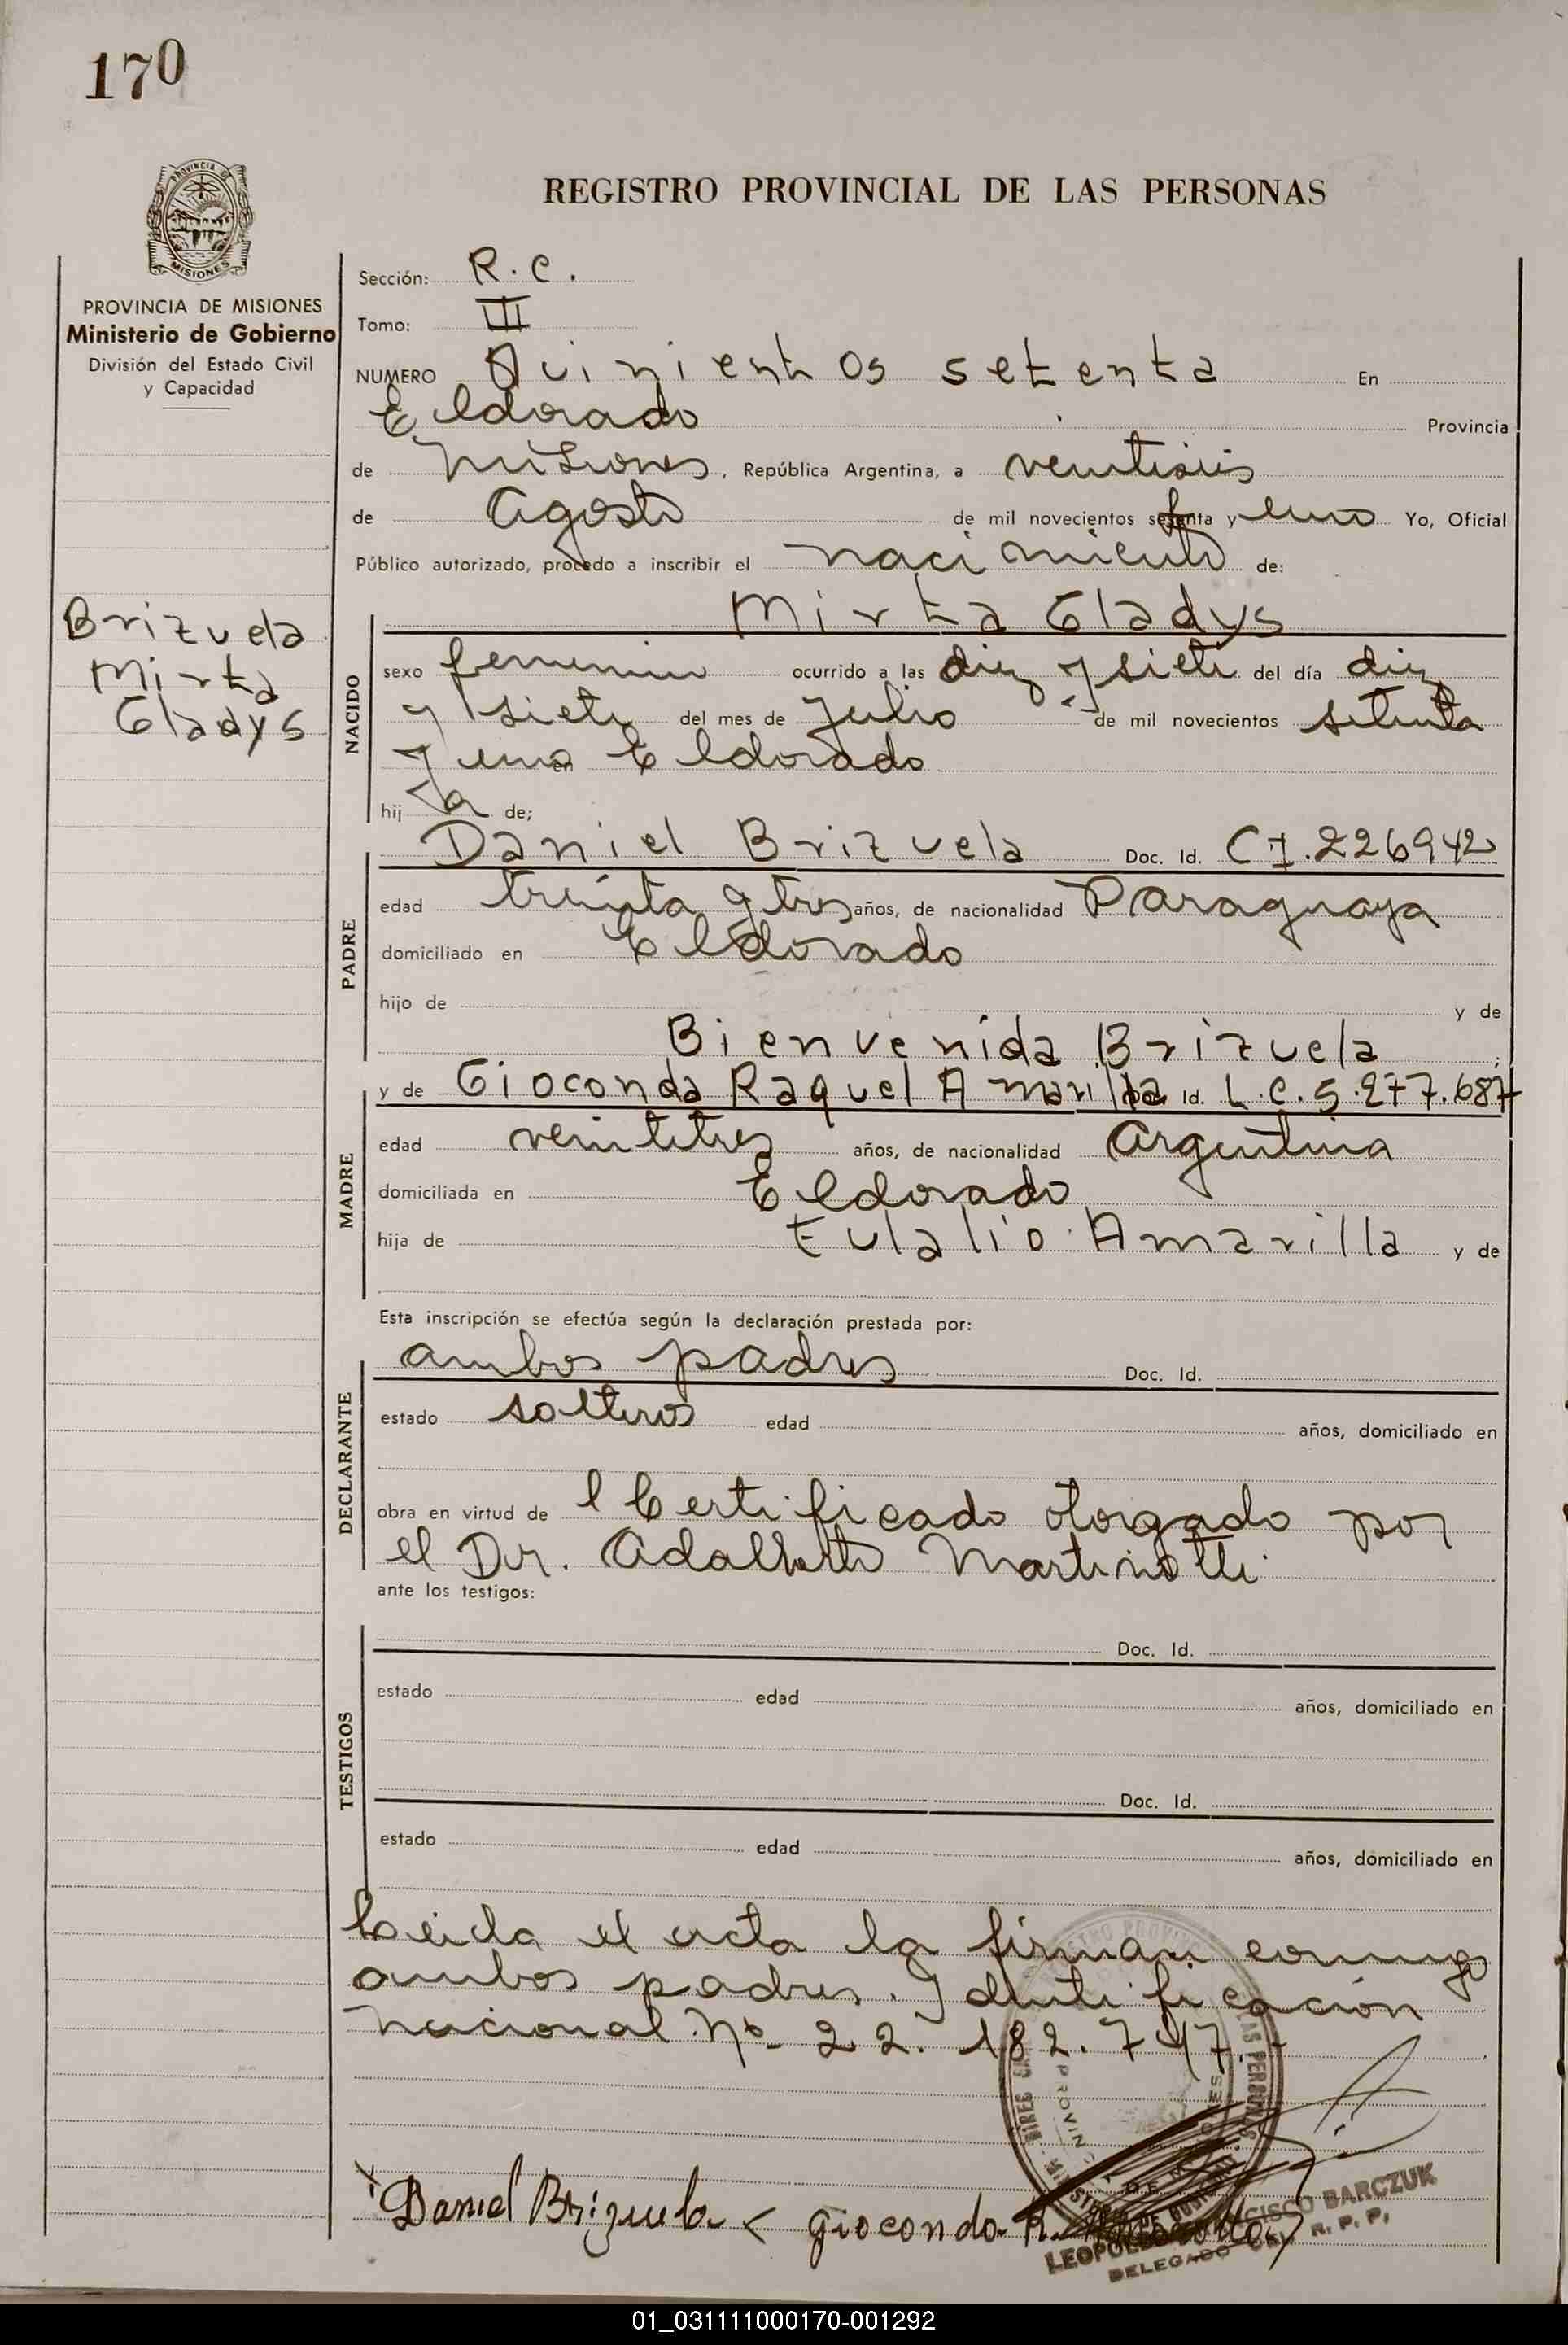 170
PROVINCIA DE
MISIONES
REGISTRO PROVINCIAL DE LAS PERSONAS
PROVINCIA DE MISIONES
Ministerio de Gobierno
División del Estado Civil
y Capacidad
Brizuela
Mirta
Gladys
Sección: R.C.
Tomo: III
NUMERO Quinientos setenta En
Eldorado Provincia
de Misiones, República Argentina, a veintiseis
de Agosto de mil novecientos setenta y uno Yo, Oficial
Público autorizado, procedo a inscribir el nacimiento de:
NACIDO
Mirta Gladys
sexo femenino ocurrido a las diez y siete del día diez
y siete del mes de Julio de mil novecientos setenta
y uno en Eldorado
hij a de;
PADRE
Daniel Brizuela Doc. Id. C.I. 226942
edad treinta y tres años, de nacionalidad Paraguaya
domiciliado en Eldorado
hijo de y de
Bienvenida Brizuela ;
MADRE
y de Gioconda Raquel Amarilla Doc. Id. L.C.5.277.687
edad veintitres años, de nacionalidad Argentina
domiciliada en Eldorado
hija de Eulalio Amarilla y de
Esta inscripción se efectúa según la declaración prestada por:
DECLARANTE
ambos padres Doc. Id.
estado solteros edad años, domiciliado en
obra en virtud de l Certificado otorgado por
el Dr. Adalberto Martinotti
ante los testigos:
TESTIGOS
Doc. Id.
estado edad años, domiciliado en
Doc. Id.
estado edad años, domiciliado en
Leida el acta la firman conmigo
ambos padres. Identificación
nacional Nº 22.182.747.-
Daniel Brizuela Gioconda R.
LEOPOLDO FRANCISCO BARCZUK
DELEGADO DEL R. P. P.
01_031111000170-001292